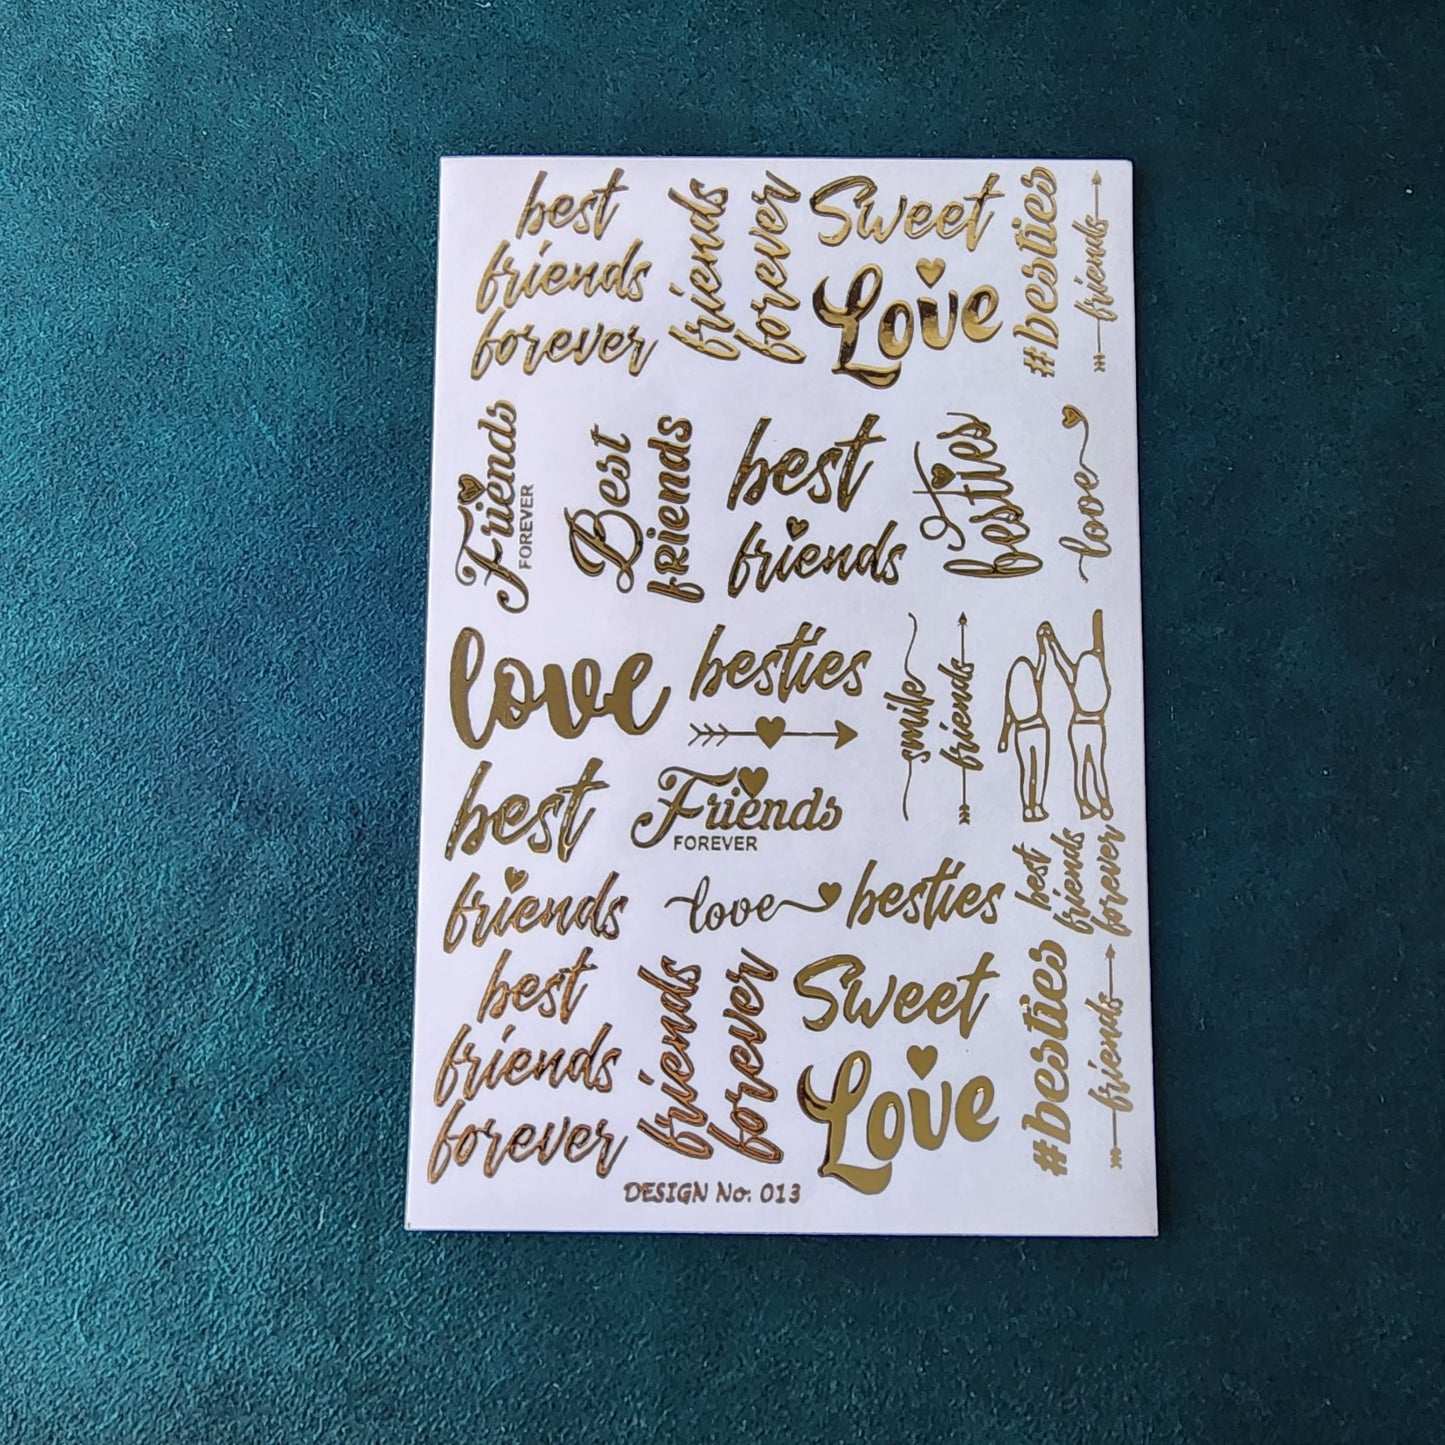 best
friends
forever
friends
forever
Sweet
Love
#besties
friends
Friends
FOREVER
Best
fRiends
best
friends
besties
love
love
besties
smile
friends
best
friends
Friends
FOREVER
love
besties
best
friends
forever
best
friends
forever
friends
forever
Sweet
Love
#besties
friends
DESIGN No. 013